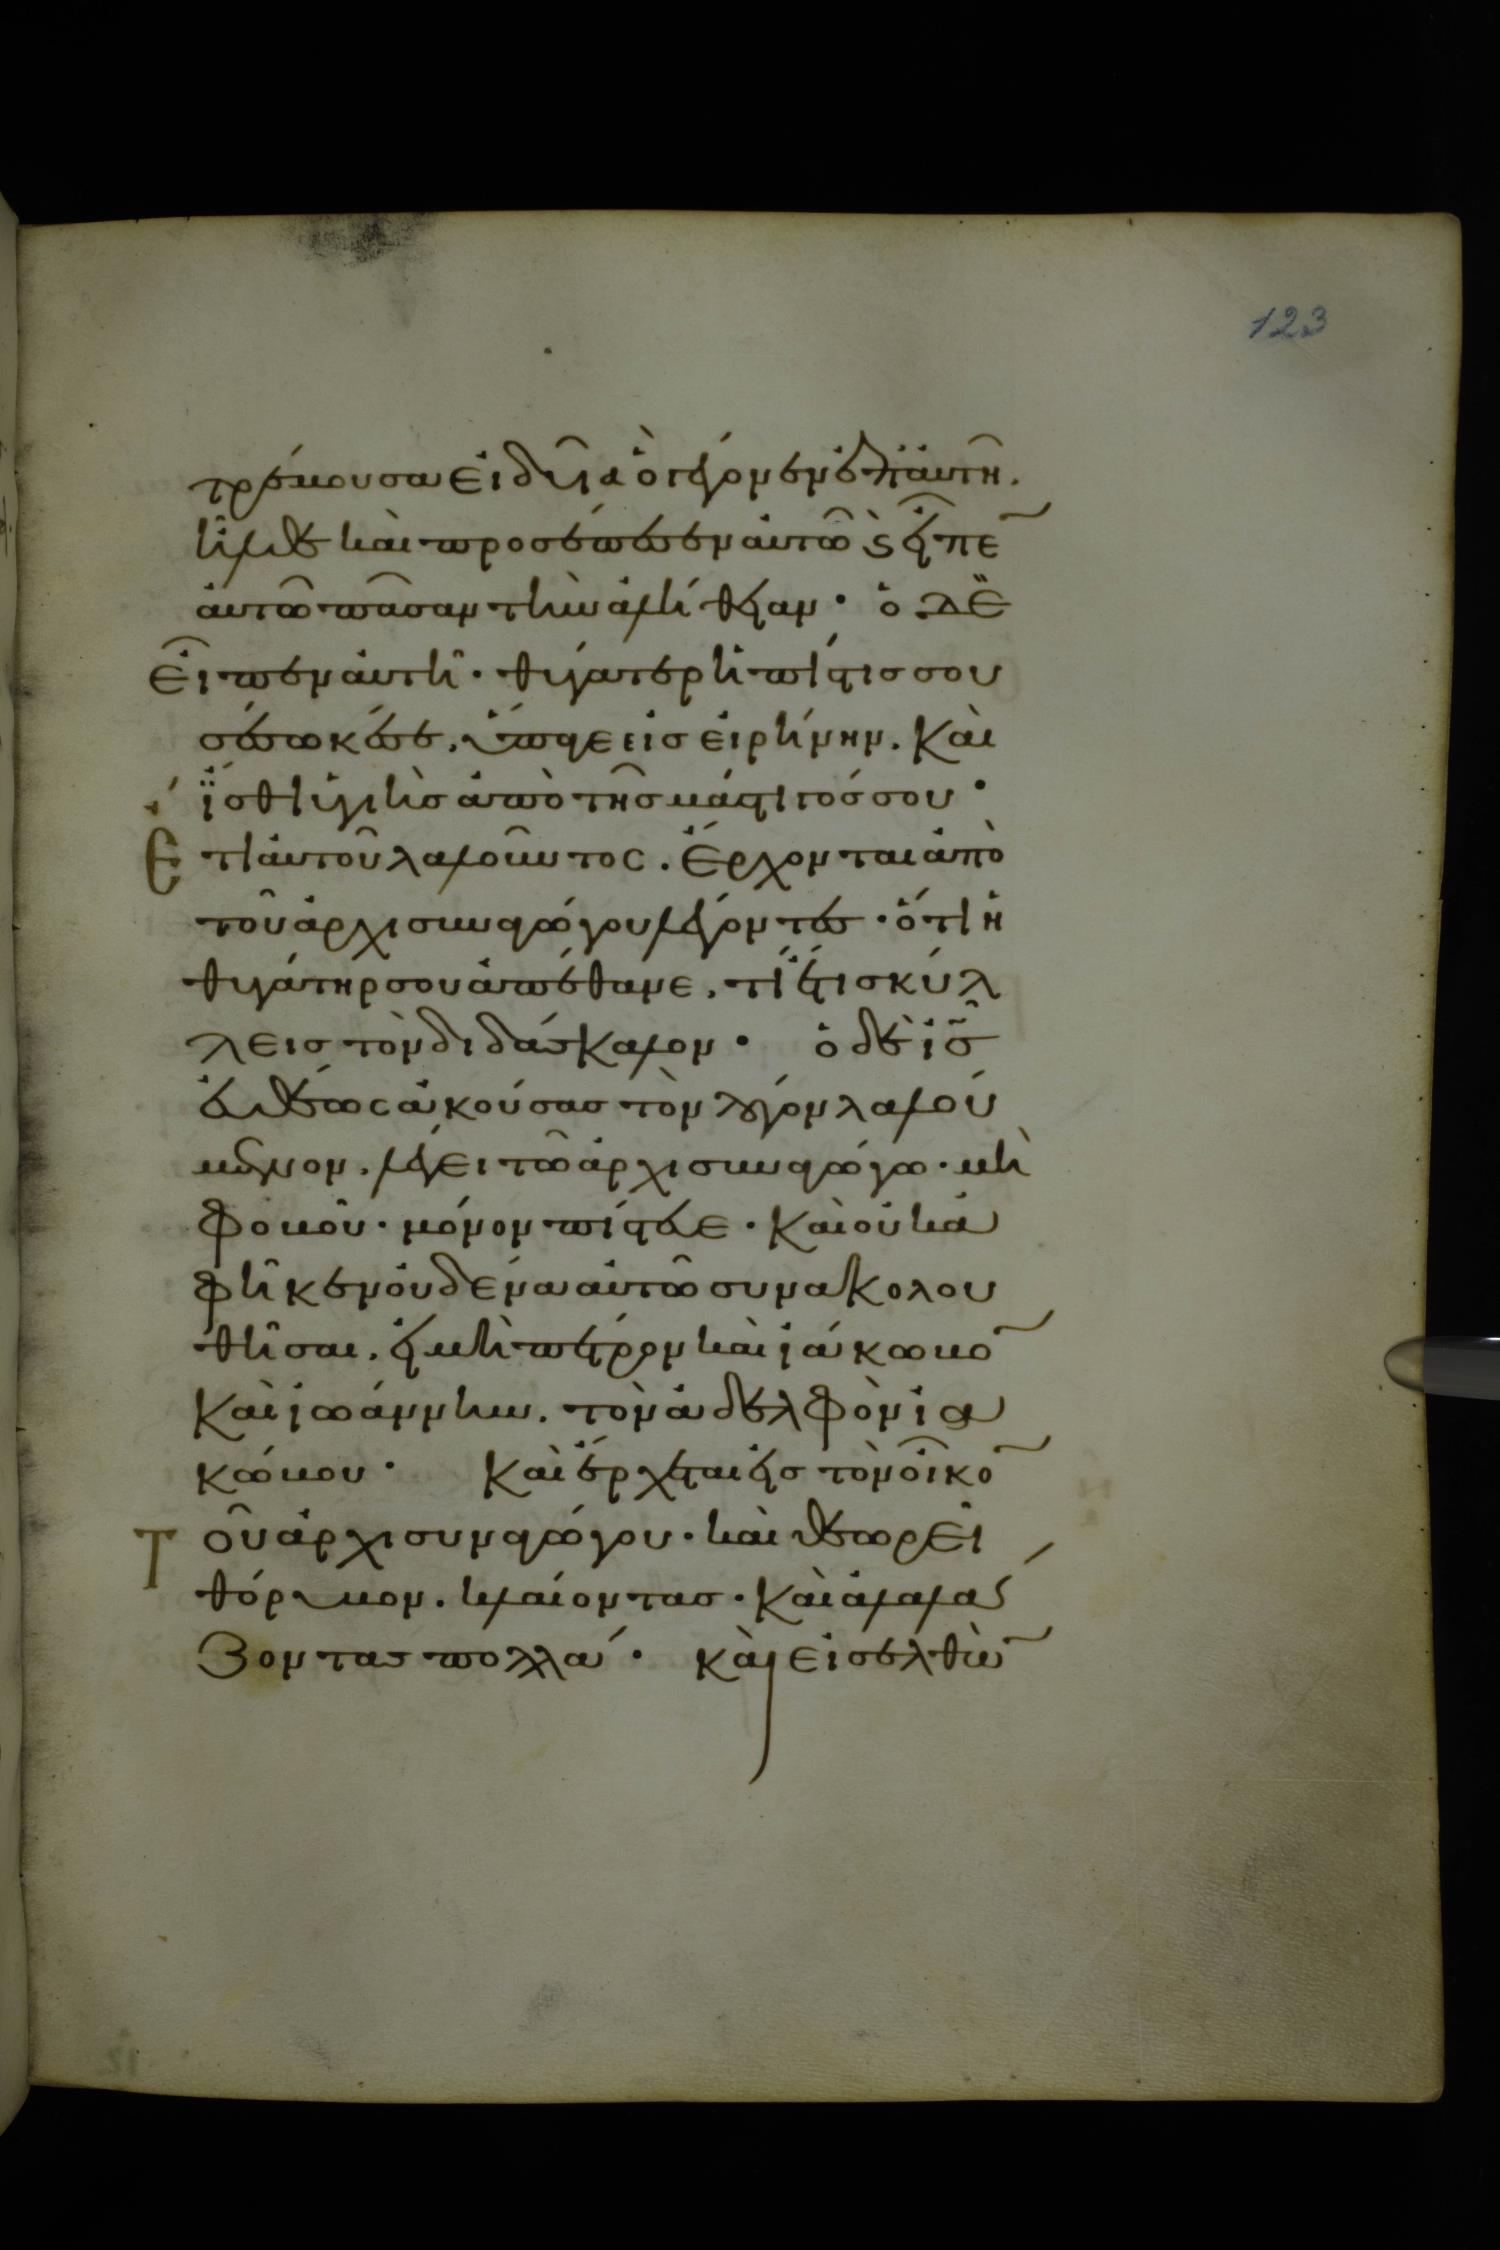 123
τρέμουσα εἰδυῖα ὃ γέγονεν ἐπ' αὐτῆ.
ἦλθε καὶ προσέπεσεν αὐτῶ ϗ εἶπε
αὐτῶ πᾶσαν τὴν ἀλήθειαν· ὁ δὲ
εἶπεν αὐτῆ· θύγατερ ἡ πίστισ σου
σέσωκέ σε. ὕπαγε εἰσ εἰρήνην. καὶ
ἴσθι ὑγιὴσ ἀπὸ τῆσ μάστιγόσ σου·
Ἔτι αὐτοῦ λαλοῦντος. ἔρχονται ἀπὸ
τοῦ ἀρχισυναγώγου λέγοντες· ὅτι ἡ
θυγάτηρ σου ἀπέθανε. τί ἔτι σκύλ
λεισ τὸν διδάσκαλον· ὁ δὲ ἰσ̅
εὐθέως ἀκούσασ τὸν λόγον λαλού
μενον. λέγει τῶ ἀρχισυναγώγω· μὴ
φοβοῦ· μόνον πίστευε· καὶ οὐκ ἀ
φῆκεν οὐδένα αὐτῶ συνακολου
θῆσαι. εἰ μὴ πέτρον καὶ ἰάκωβο̅
καὶ ἰωάννην. τὸν ἀδελφὸν ἰα
κώβου· καὶ ἔρχεται εἰσ τὸν οἶκο̅
Τοῦ ἀρχισυναγώγου· καὶ θεωρεῖ
θόρυβον. κλαίοντασ· καὶ ἀλαλά
ζοντασ πολλά· καὶ εἰσελθὼ̅